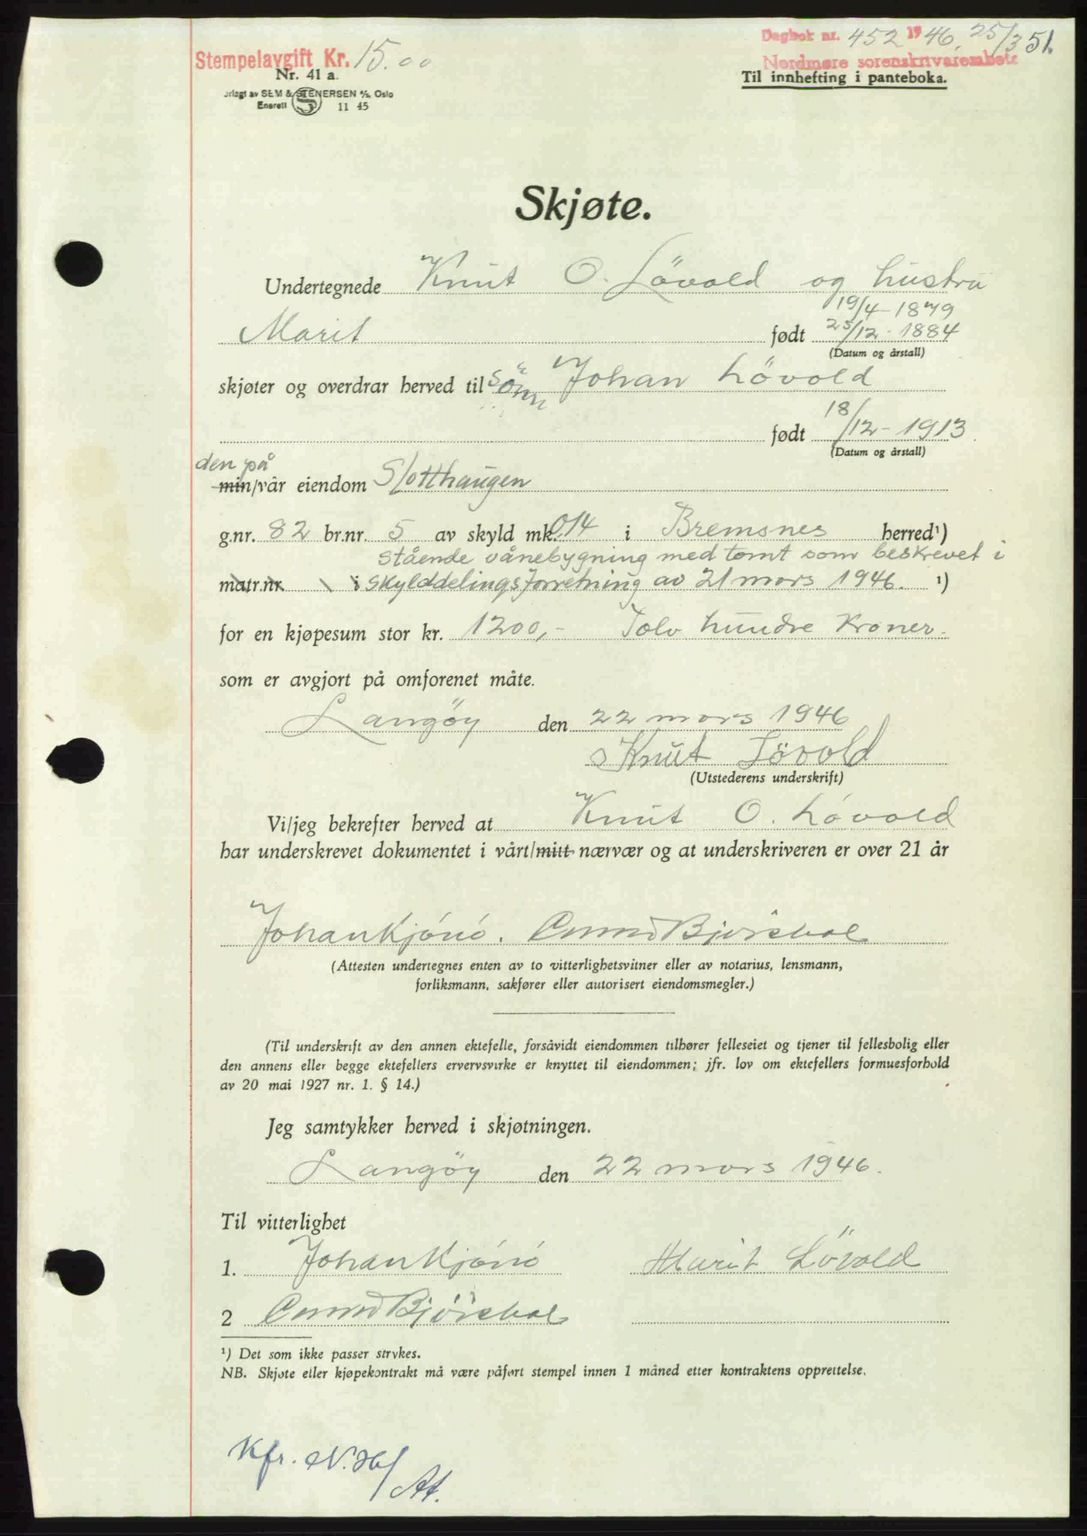 Stempelavgift Kr. 15.00
Dagbok nr. 452 1946, 25/3 51.
Nordmøre sorenskriverembete
Nr. 41 a.
Til innhefting i panteboka.
orlagt av SEM & STENERSEN A/S, Oslo
Enerett S 11 45
Skjøte.
Undertegnede Knut O. Lövold og hustru
19/4-1879
Marit født 25/12-1884
(Datum og årstall)
skjøter og overdrar herved til sönn Johan Lövold
født 18/12-1913
(Datum og årstall)
den på
min/vår eiendom Slotthaugen
g.nr. 82 br.nr. 5 av skyld mk. 0,14 i Bremsnes herred¹)
stående vånebygning med tomt som beskrevet i
matr.nr. i skylddelingsforretning av 21 mars 1946. ¹)
for en kjøpesum stor kr. 1200,- Tolv hundre Kroner.
som er avgjort på omforenet måte.
Langöy den 22 mars 1946
Knut Lövold
(Utstederens underskrift)
Vi/jeg bekrefter herved at Knut O. Lövold
har underskrevet dokumentet i vårt/mitt nærvær og at underskriveren er over 21 år
Johan Kjönö.
(Attesten undertegnes enten av to vitterlighetsvitner eller av notarius, lensmann,
forliksmann, sakfører eller autorisert eiendomsmegler.)
(Til underskrift av den annen ektefelle, forsåvidt eiendommen tilhører felleseiet og tjener til fellesbolig eller
den annens eller begge ektefellers ervervsvirke er knyttet til eiendommen; jfr. lov om ektefellers formuesforhold
av 20 mai 1927 nr. 1. § 14.)
Jeg samtykker herved i skjøtningen.
Langöy den 22 mars 1946.
Til vitterlighet
1. Johan Kjönö Marit Lövold
2
¹) Det som ikke passer strykes.
NB. Skjøte eller kjøpekontrakt må være påført stempel innen 1 måned etter kontraktens opprettelse.
Kfr.